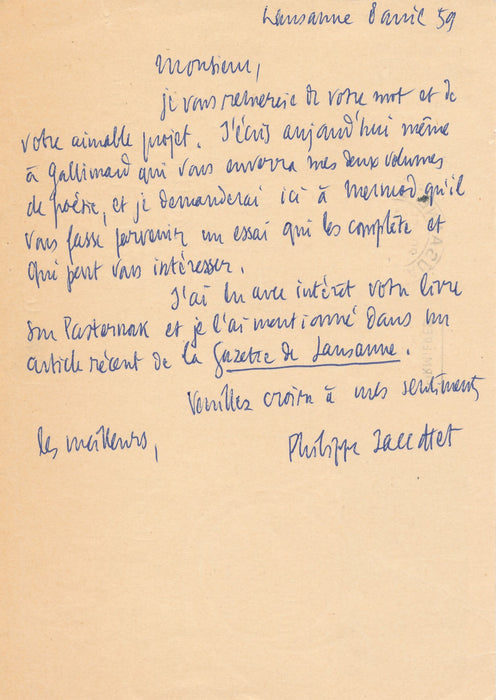 Lausanne 8 avril 59
Monsieur,
je vous remercie de votre mot et de
votre aimable projet. J'écris aujourd'hui même
à Gallimard qui vous enverra mes deux volumes
de poésie, et je demanderai ici à Mermod qu'il
vous fasse parvenir un essai qui les complète et
qui peut vous intéresser.
J'ai lu avec intérêt votre livre
sur Pasternak et je l'ai mentionné dans un
article récent de la Gazette de Lausanne.
Veuillez croire à mes sentiments
les meilleurs,
Philippe Jaccottet